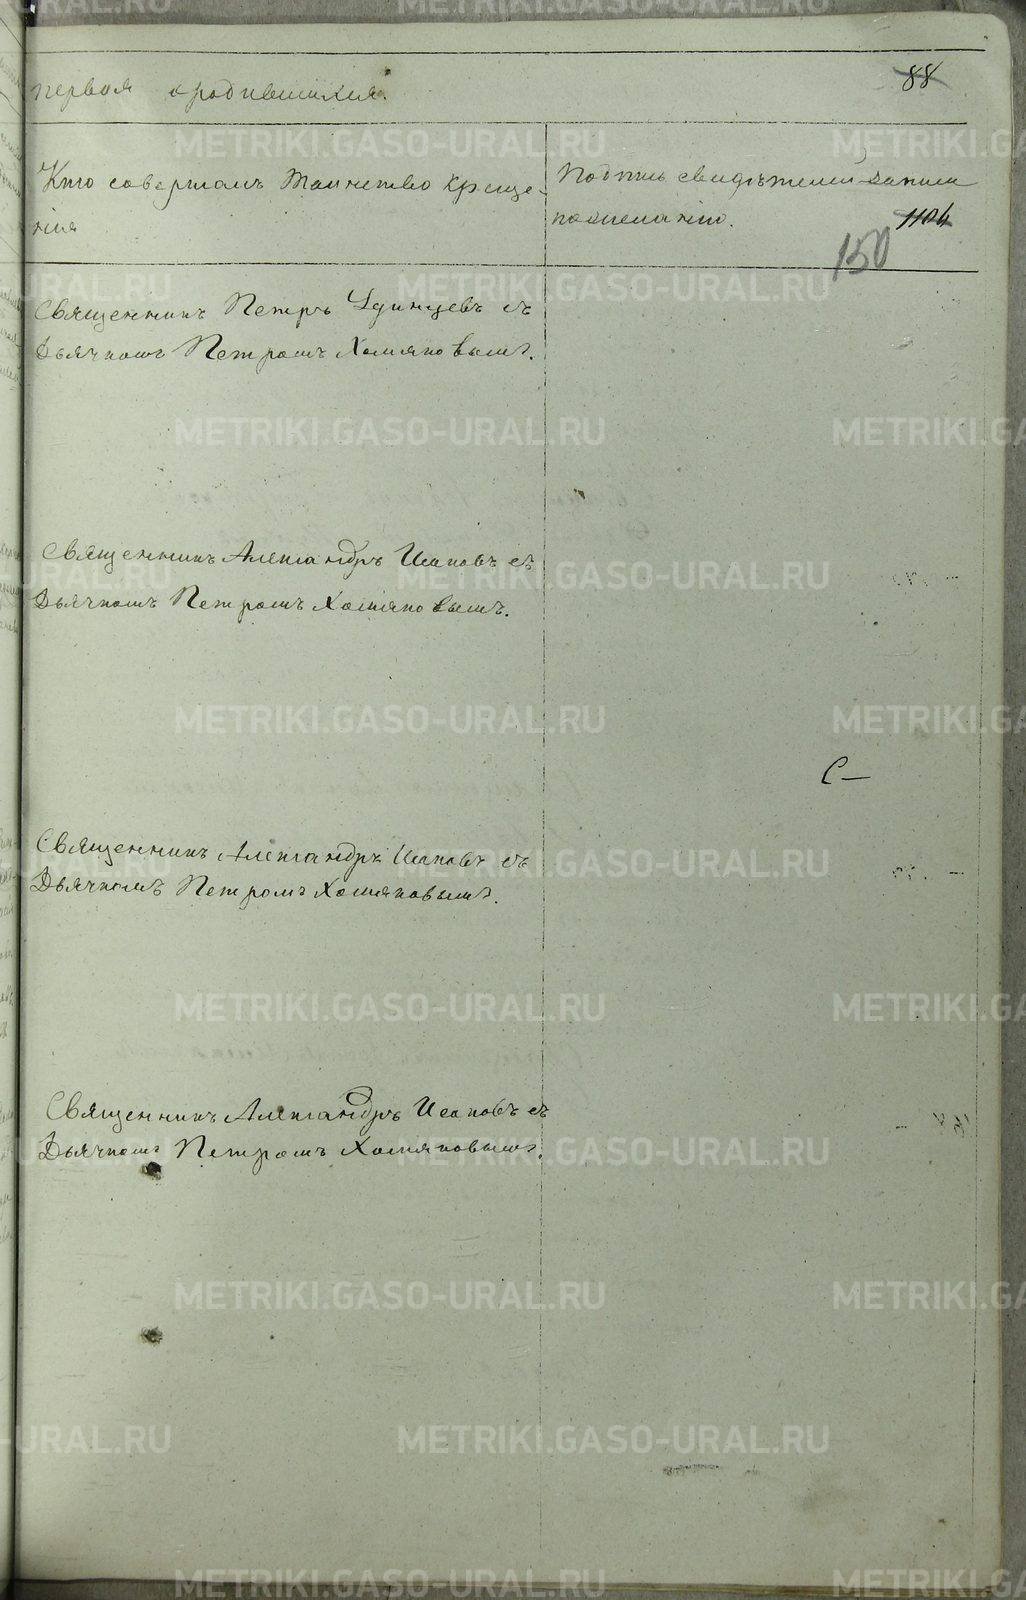 первая о родившихся.
88
Кто совершалъ Таинство креще-
нія
Подпись свидѣтелей записи
по желанію.
1104
150
Священникъ Петръ Удинцевъ съ
Дьячкомъ Петромъ Хомяковымъ.
Священникъ Александръ Исаковъ съ
Дьячкомъ Петромъ Хомяковымъ.
С—
Священникъ Александръ Исаковъ съ
Дьячкомъ Петромъ Хомяковымъ.
Священникъ Александръ Исаковъ съ
Дьячкомъ Петромъ Хомяковымъ.
METRIKI.GASO-URAL.RU